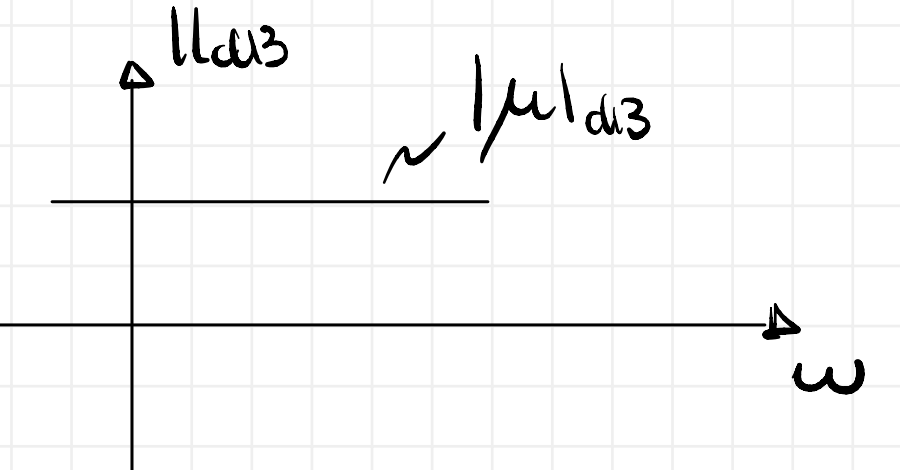 ||dB
|μ|dB
ω